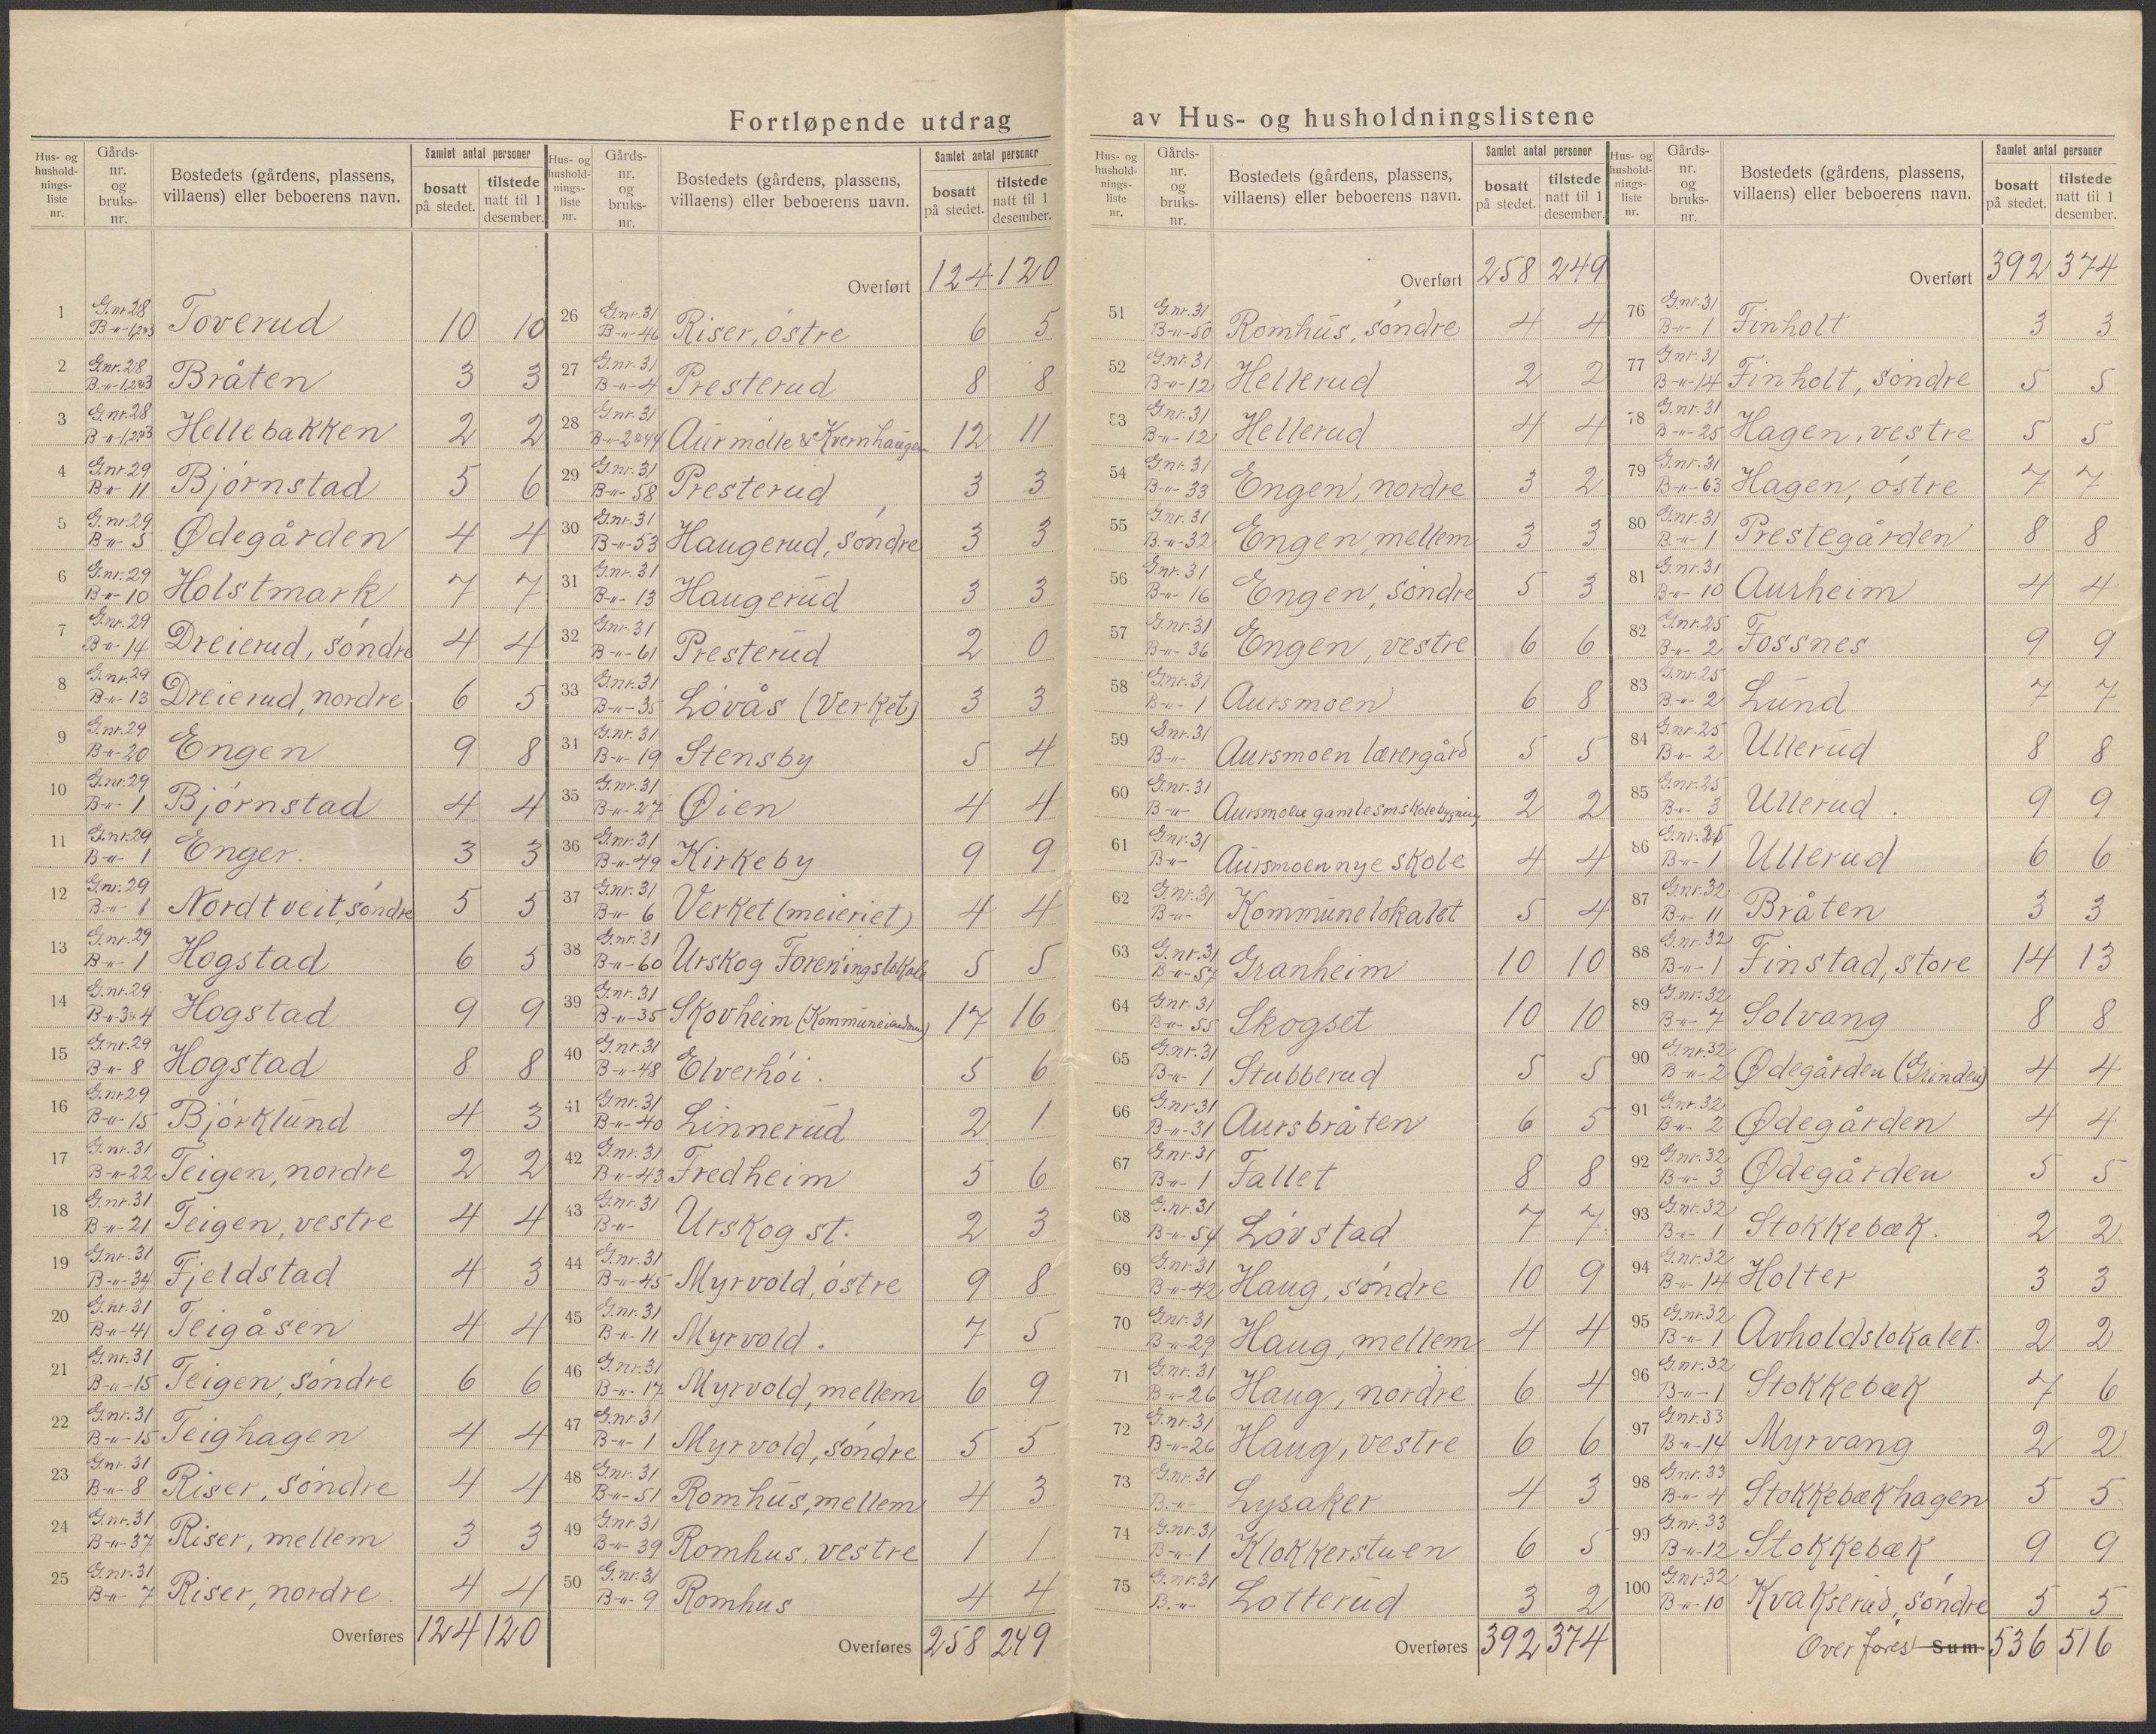 Fortløpende utdrag av Hus- og husholdningslistene
Hus- og hushold-nings-liste nr. Gårds-nr. og bruks-nr. Bostedets (gårdens, plassens, villaens) eller beboerens navn. Samlet antal personer bosatt på stedet. tilstede natt til 1 desember.
1 G.nr. 28 B-"-1,2&3 Toverud 10 10
2 G.nr. 28 B-"-1,2&3 Bråten 3 3
3 G.nr. 28 B-"-1,2&3 Hellebakken 2 2
4 G.nr. 29 B-"- 11 Bjørnstad 5 6
5 G.nr. 29 B-"- 5 Ødegården 4 4
6 G.nr. 29 B-"- 10 Holstmark 7 7
7 G.nr. 29 B-"- 14 Dreierud, søndre 4 4
8 G.nr. 29 B-"- 13 Dreierud, nordre 6 5
9 G.nr. 29 B-"- 20 Engen 9 8
10 G.nr. 29 B-"- 1 Bjørnstad 4 4
11 G.nr. 29 B-"- 1 Enger. 3 3
12 G.nr. 29 B-"- 1 Nordtveit, søndre 5 5
13 G.nr. 29 B-"- 1 Høgstad 6 5
14 G.nr. 29 B-"-3&4 Høgstad 9 9
15 G.nr. 29 B-"- 8 Høgstad 8 8
16 G.nr. 29 B-"- 15 Bjørklund 4 3
17 G.nr. 31 B-"- 22 Teigen, nordre 2 2
18 G.nr. 31 B-"- 21 Teigen, vestre 4 4
19 G.nr. 31 B-"- 34 Fjeldstad 4 3
20 G.nr. 31 B-"- 41 Teigåsen 4 4
21 G.nr. 31 B-"- 15 Teigen, søndre 6 6
22 G.nr. 31 B-"- 15 Teighagen 4 4
23 G.nr. 31 B-"- 8 Riser, søndre 4 4
24 G.nr. 31 B-"- 37 Riser, mellem 3 3
25 G.nr. 31 B-"- 7 Riser, nordre. 4 4
Overføres 124 120
Hus- og hushold-nings-liste nr. Gårds-nr. og bruks-nr. Bostedets (gårdens, plassens, villaens) eller beboerens navn. Samlet antal personer bosatt på stedet. tilstede natt til 1 desember.
Overført 124 120
26 G.nr. 31 B-"- 46 Riser, østre 6 5
27 G.nr. 31 B-"- 4 Presterud 8 8
28 G.nr. 31 B-"-2&44 Aurmølle & Kvernhaugen 12 11
29 G.nr. 31 B-"- 58 Presterud 3 3
30 G.nr. 31 B-"- 53 Haugerud, søndre 3 3
31 G.nr. 31 B-"- 13 Haugerud 3 3
32 G.nr. 31 B-"- 61 Presterud 2 0
33 G.nr. 31 B-"- 35 Løvås (Verket) 3 3
34 G.nr. 31 B-"- 19 Stensby 5 4
35 G.nr. 31 B-"- 27 Øien 4 4
36 G.nr. 31 B-"- 49 Kirkeby 9 9
37 G.nr. 31 B-"- 6 Verket (meieriet) 4 4
38 G.nr. 31 B-"- 60 Urskog Foreningslokale 5 5
39 G.nr. 31 B-"- 35 Skovheim 17 16
40 G.nr. 31 B-"- 48 Elverhøi. 5 6
41 G.nr. 31 B-"- 40 Linnerud 2 1
42 G.nr. 31 B-"- 43 Fredheim 5 6
43 G.nr. 31 B-"- Urskog st. 2 3
44 G.nr. 31 B-"- 45 Myrvold, østre 9 8
45 G.nr. 31 B-"- 11 Myrvold. 7 5
46 G.nr. 31 B-"- 17 Myrvold, mellem 6 9
47 G.nr. 31 B-"- 1 Myrvold, søndre 5 5
48 G.nr. 31 B-"- 51 Romhus, mellem 4 3
49 G.nr. 31 B-"- 39 Romhus, vestre 1 1
50 G.nr. 31 B-"- 9 Romhus 4 4
Overføres 258 249
Hus- og hushold-nings-liste nr. Gårds-nr. og bruks-nr. Bostedets (gårdens, plassens, villaens) eller beboerens navn. Samlet antal personer bosatt på stedet. tilstede natt til 1 desember.
Overført 258 249
51 G.nr. 31 B-"- 50 Romhus, søndre 4 4
52 G.nr. 31 B-"- 12 Hellerud 2 2
53 G.nr. 31 B-"- 12 Hellerud 4 4
54 G.nr. 31 B-"- 33 Engen, nordre 3 2
55 G.nr. 31 B-"- 32 Engen, mellem 3 3
56 G.nr. 31 B-"- 16 Engen, søndre 5 3
57 G.nr. 31 B-"- 36 Engen, vestre 6 6
58 G.nr. 31 B-"- 1 Aursmoen 6 8
59 G.nr. 31 B-"- Aursmoen lærergård 5 5
60 G.nr. 31 B-"- Aursmoen gamle 2 2
61 G.nr. 31 B-"- Aursmoen nye skole 4 4
62 G.nr. 31 B-"- Kommunelokalet 5 4
63 G.nr. 31 B-"- 57 Granheim 10 10
64 G.nr. 31 B-"- 55 Skogset 10 10
65 G.nr. 31 B-"- 1 Stubberud 5 5
66 G.nr. 31 B-"- 31 Aursbråten 6 5
67 G.nr. 31 B-"- 1 Fallet 8 8
68 G.nr. 31 B-"- 54 Løvstad 7 7
69 G.nr. 31 B-"- 42 Haug, søndre 10 9
70 G.nr. 31 B-"- 29 Haug, mellem 4 4
71 G.nr. 31 B-"- 26 Haug, nordre 6 4
72 G.nr. 31 B-"- 26 Haug, vestre 6 6
73 G.nr. 31 B-"- Lysaker 4 3
74 G.nr. 31 B-"- 1 Klokkerstuen 6 5
75 G.nr. 31 B-"- Lotterud 3 2
Overføres 392 374
Hus- og hushold-nings-liste nr. Gårds-nr. og bruks-nr. Bostedets (gårdens, plassens, villaens) eller beboerens navn. Samlet antal personer bosatt på stedet. tilstede natt til 1 desember.
Overført 392 374
76 G.nr. 31 B-"- 1 Finholt 3 3
77 G.nr. 31 B-"- 14 Finholt, søndre 5 5
78 G.nr. 31 B-"- 25 Hagen, vestre 5 5
79 G.nr. 31 B-"- 63 Hagen, østre 7 7
80 G.nr. 31 B-"- 1 Prestegården 8 8
81 G.nr. 31 B-"- 10 Aurheim 4 4
82 G.nr. 25 B-"- 2 Fossnes 9 9
83 G.nr. 25 B-"- 2 Lund 7 7
84 G.nr. 25 B-"- 2 Ullerud 8 8
85 G.nr. 25 B-"- 3 Ullerud. 9 9
86 G.nr. B-"- 1 Ullerud 6 6
87 G.nr. 32 B-"- 11 Bråten 3 3
88 G.nr. 32 B-"- 1 Finstad, store 14 13
89 G.nr. 32 B-"- 7 Solvang 8 8
90 G.nr. 32 B-"- 2 Ødegården (Grinden) 4 4
91 G.nr. 32 B-"- 2 Ødegården 4 4
92 G.nr. 32 B-"- 3 Ødegården 5 5
93 G.nr. 32 B-"- 1 Stokkebæk. 2 2
94 G.nr. 32 B-"- 14 Holter 3 3
95 G.nr. 32 B-"- 1 Avholdslokalet. 2 2
96 G.nr. 32 B-"- 1 Stokkebæk 7 6
97 G.nr. 33 B-"- 14 Myrvang 2 2
98 G.nr. 33 B-"- 4 Stokkebækhagen 5 5
99 G.nr. 33 B-"- 12 Stokkebæk 9 9
100 G.nr. 32 B-"- 10 Kvakserud, søndre 5 5
Overføres Sum 536 516